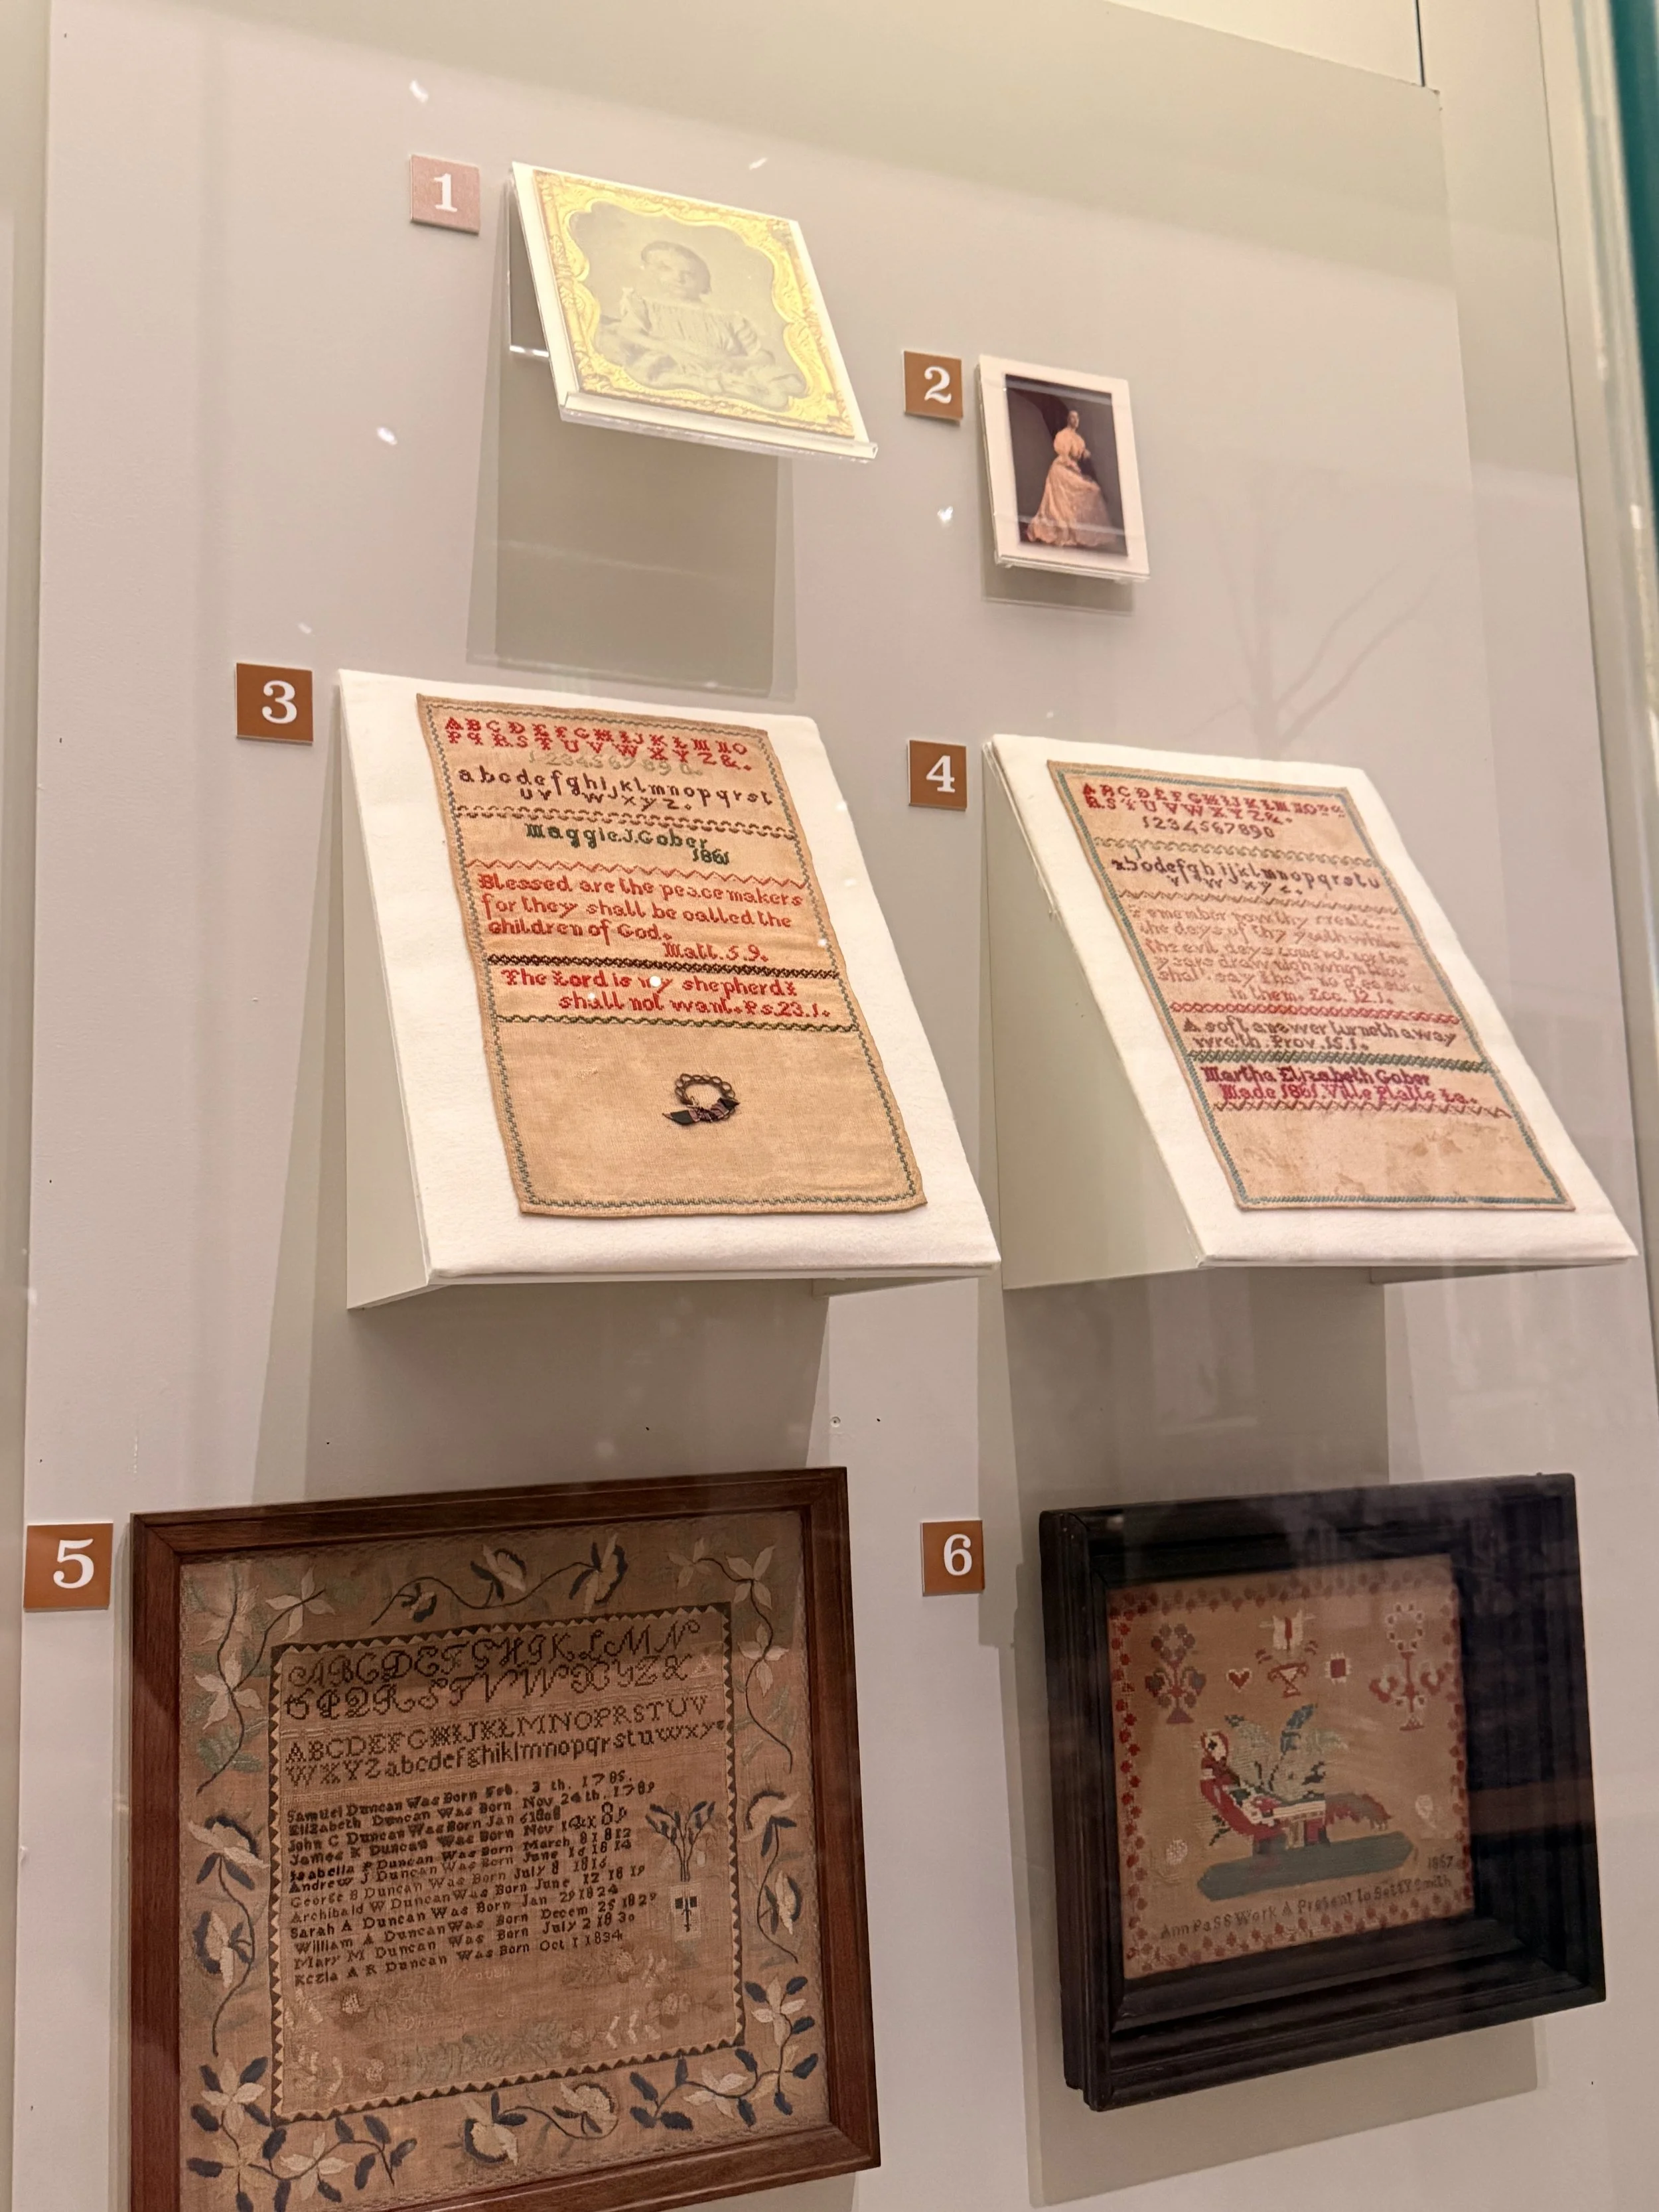 1
2
3
ABCDEFGHIJKLMNO
PQRSTUVWXYZ&.
1234567890.
abcdefghijklmnopqrst
uvwxyz.
Maggie.J.Gober
1861
Blessed are the peacemakers
for they shall be called the
children of God.
Matt.5.9.
The Lord is my shepherd I
shall not want. Ps.23.1.
4
ABCDEFGHIJKLMNOPQ
RSTUVWXYZ&.
1234567890
abcdefghijklmnopqrstu
vwxyz.
the days of thy youth while
the evil days come not nor the
years draw nigh when thou
shalt say
in them. Ecc. 12.1.
A soft answer turneth away
wrath. Prov.15.1.
Martha Elizabeth Gober
Made 1861. Ville Platte La.
5
ABCDEFGHIKLMN
OPQRSTVWXYZ
ABCDEFGHIJKLMNOPRSTUV
WXYZabcdefghiklmnopqrstuwxy
Samuel Duncan Was Born Feb. 3 th. 1785.
Elizabeth Duncan Was Born Nov 24th. 1789
John C Duncan Was Born Jan 1808
James K Duncan Was Born Nov
Isabella P Duncan Was Born March 8 1812
Andrew J Duncan Was Born June 1814
George B Duncan Was Born July 8 1816
Archibald W Duncan Was Born June 12 1819
Sarah A Duncan Was Born Jan 29 1824
William A Duncan Was Born Decem 25 1829
Mary M Duncan Was Born July 2 1830
Kezia A R Duncan Was Born Oct 1 1834
6
1857
Ann Pass Work A Present to Betty Smith